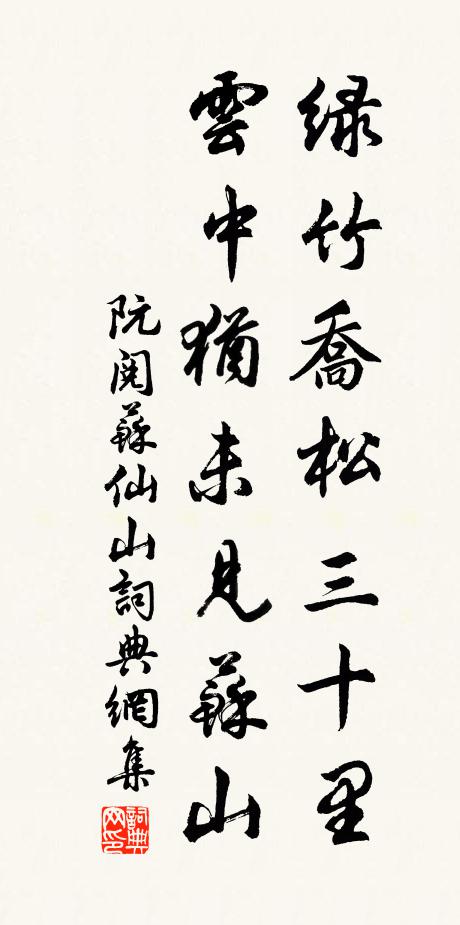 緑竹喬松三十里
雲中猶未見蘇山
阮閱蘇仙山詞典網集
詞典网印